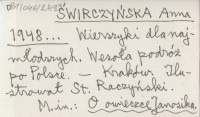 ŚWIRCZYŃSKA Anna
1948... Wierszyki dla naj-
młodszych. Wesoła podróż
po Polsce. – Kraków. Ilu-
strował St. Raczyński.
M.in.: O owieczce Janosika.